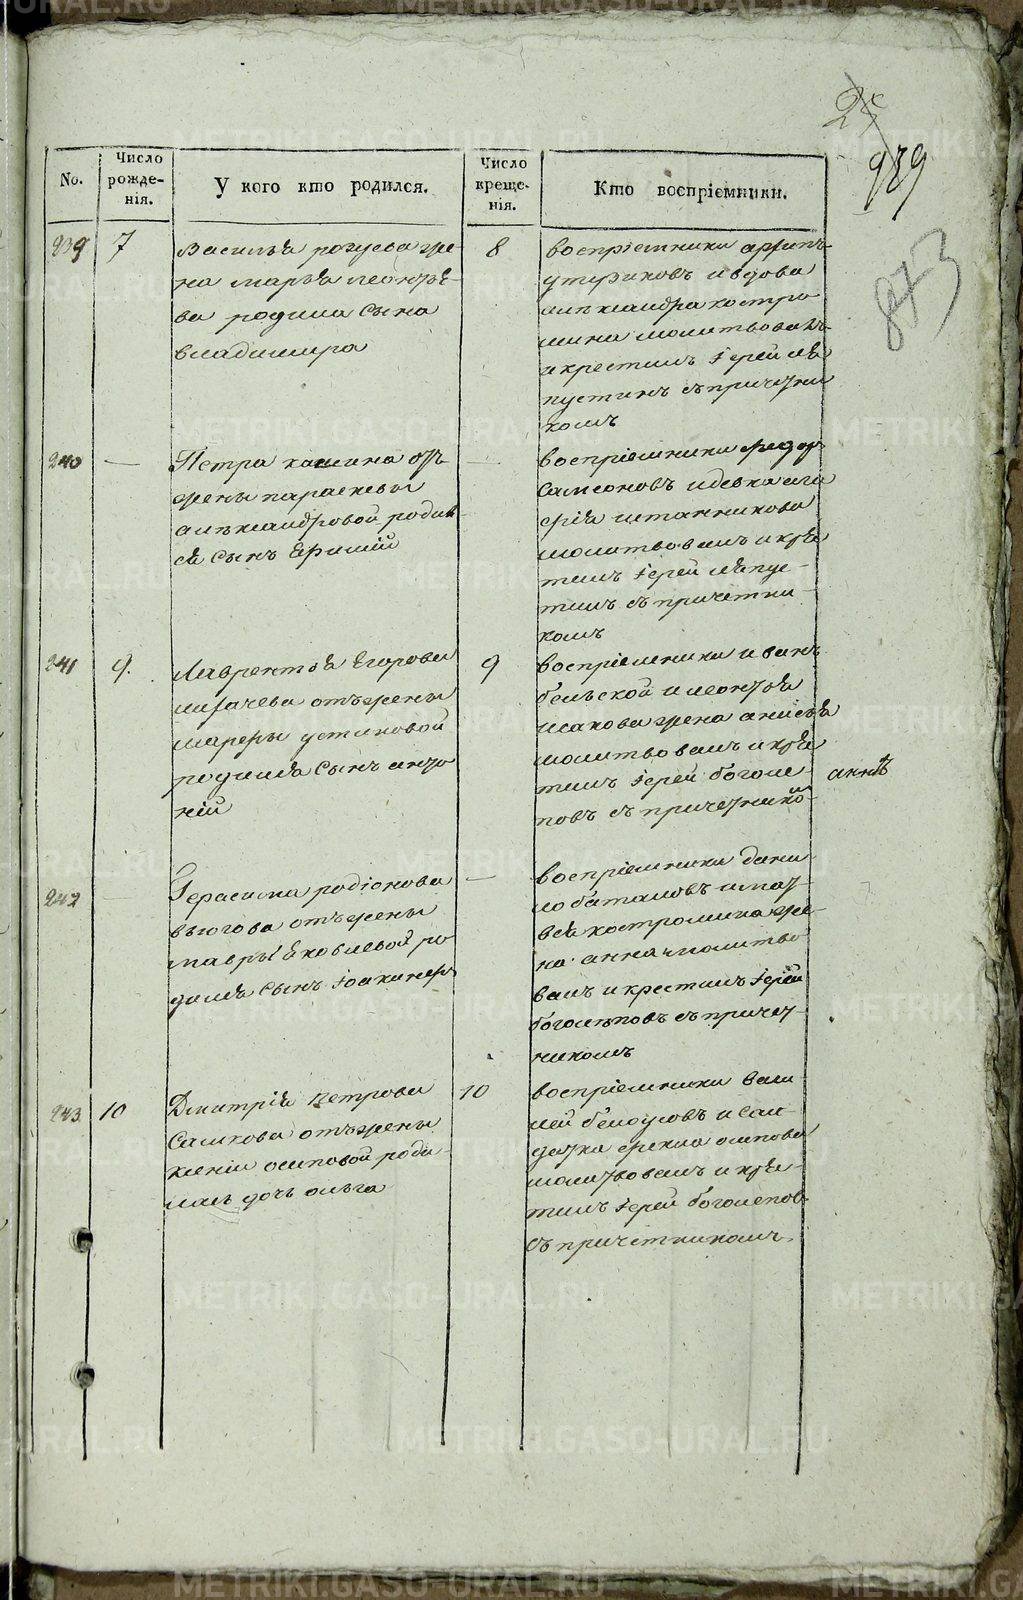 25
989
873
No.
Число рожде-
нія.
У кого кто родился.
Число креще-
нія.
Кто воспріемники.
239 7
Василья рогусва же-
на марья леонтье-
ва родила сына
владимира
8
воспріемники архипъ
и вдова
александра костро
мина молитвовалъ
и крестилъ іерей ля
пустинъ съ причетни
комъ
240 —
Петра кашина отъ
жены параскевы
александровой родил
ся сынъ
—
воспріемники федоръ
самсоновъ и девка
штанникова
молитвовалъ и кре
тилъ іерей ляпус-
тинъ съ причетни-
комъ
241 9.
Лаврентья Егорова
отъ жены
марфы устиновой
родился сынъ анто
ній
9
воспріемники иванъ
бельской и леонтья
исакова жена анисья
молитвовалъ и кре
тилъ іерей боголе-
повъ съ причетнико
аннъ
242 —
Герасима родіонова
вьюгова отъ жены
мавры яковлевой ро
дился сынъ іоакинфъ
—
воспріемники дани
ло баталовъ и мат-
вея костромина же-
на анна молитво
валъ и крестилъ іерей
боголеповъ съ причет-
никомъ
243 10
Дмитрія Петрова
Салкова отъ жены
ксеніи осиповой роди-
лась дочь ольга
10
воспріемники васи-
лей белоусовъ и сал-
датка фекла осипова
молитвовалъ и кре-
тилъ іерей боголепов
съ причетникомъ.
METRIKI.GASO-URAL.RU